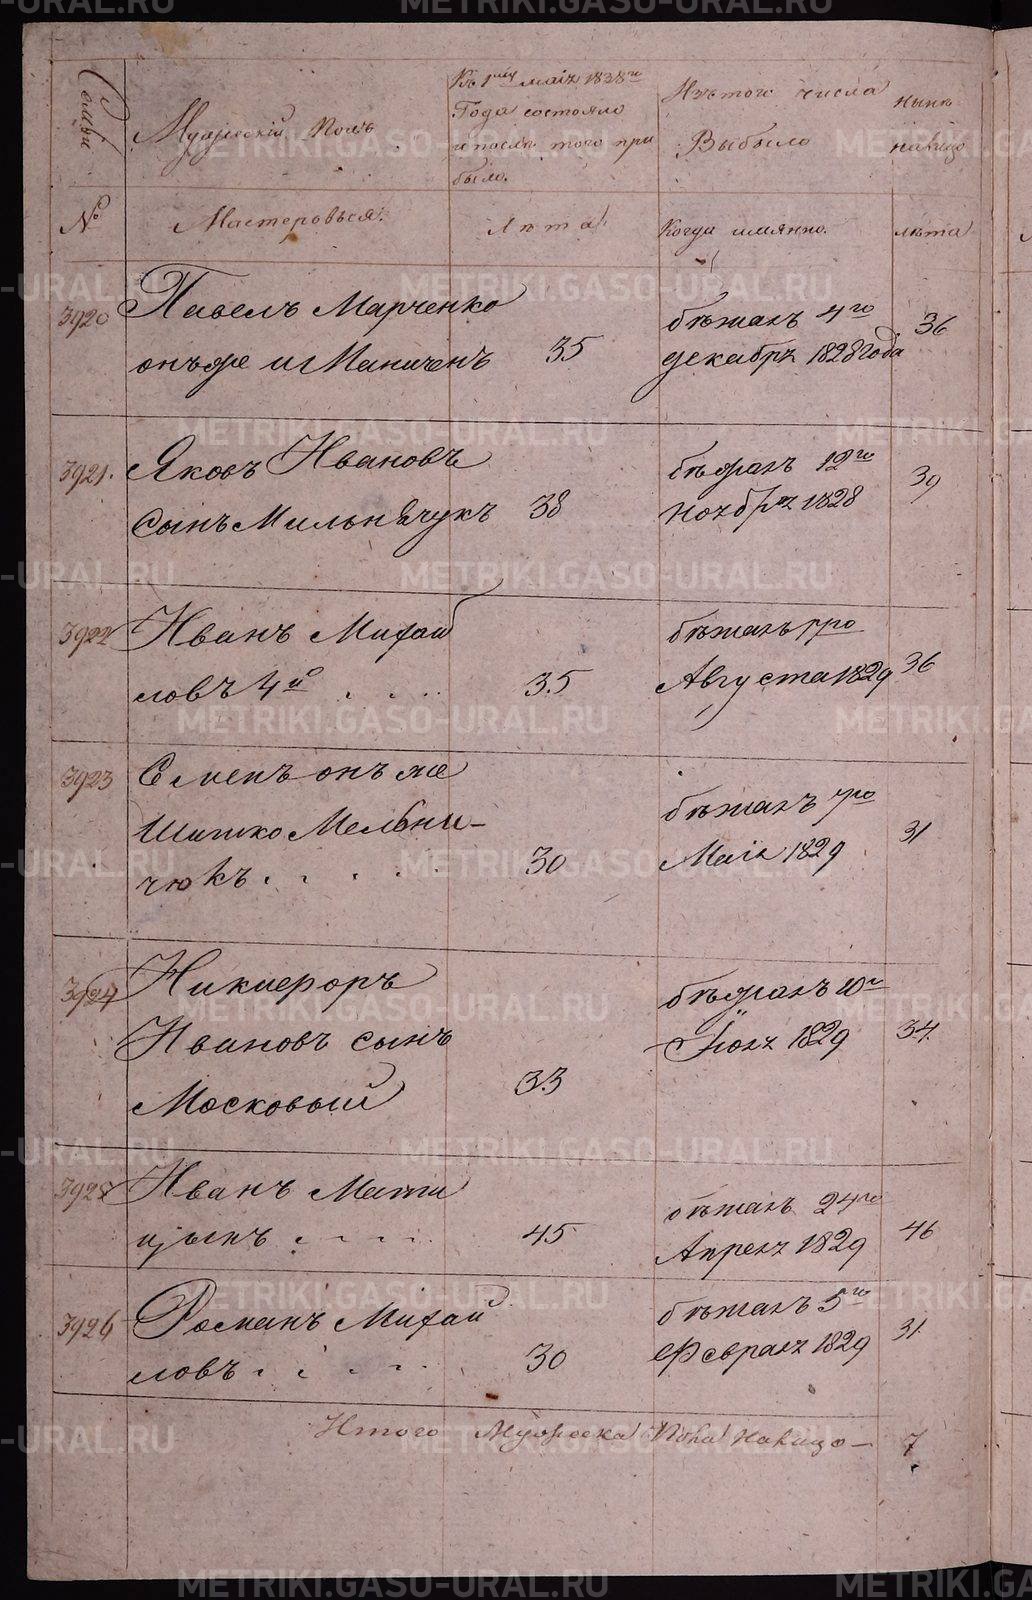 Семьи
Мужескій Полъ
Къ 1му маія 1828го
Года состояло
и послѣ того при
было.
Изъ того числа
Выбыло
нынѣ
налицо
№
Мастеровыя.
Лѣта
Когда имянно.
лѣта
3920
Павелъ Марченко
онъже и Маниченъ
35
бѣжалъ 4го
декабря 1828 года
36
3921.
Яковъ Ивановъ
сынъ Мильничукъ
38
бѣжалъ 12го
ноября 1828
39
3922
Иванъ Михай
ловъ 4й
35
бѣжалъ
Августа 1829
36
3923
Семенъ онъ же
Шитко Мельни-
чюкъ
30
бѣжалъ 7го
Маія 1829
31
3924
Никифоръ
Ивановъ сынъ
Московый
33
бѣжалъ 10го
Іюля 1829
34.
3925
Иванъ Мати
цынъ
45
бѣжалъ 24го
Апреля 1829
46
3926
Романъ Михай
ловъ
30
бѣжалъ 5го
Февраля 1829
31.
Итого Мужеска Пола Налицо — 7
METRIKI.GASO-URAL.RU